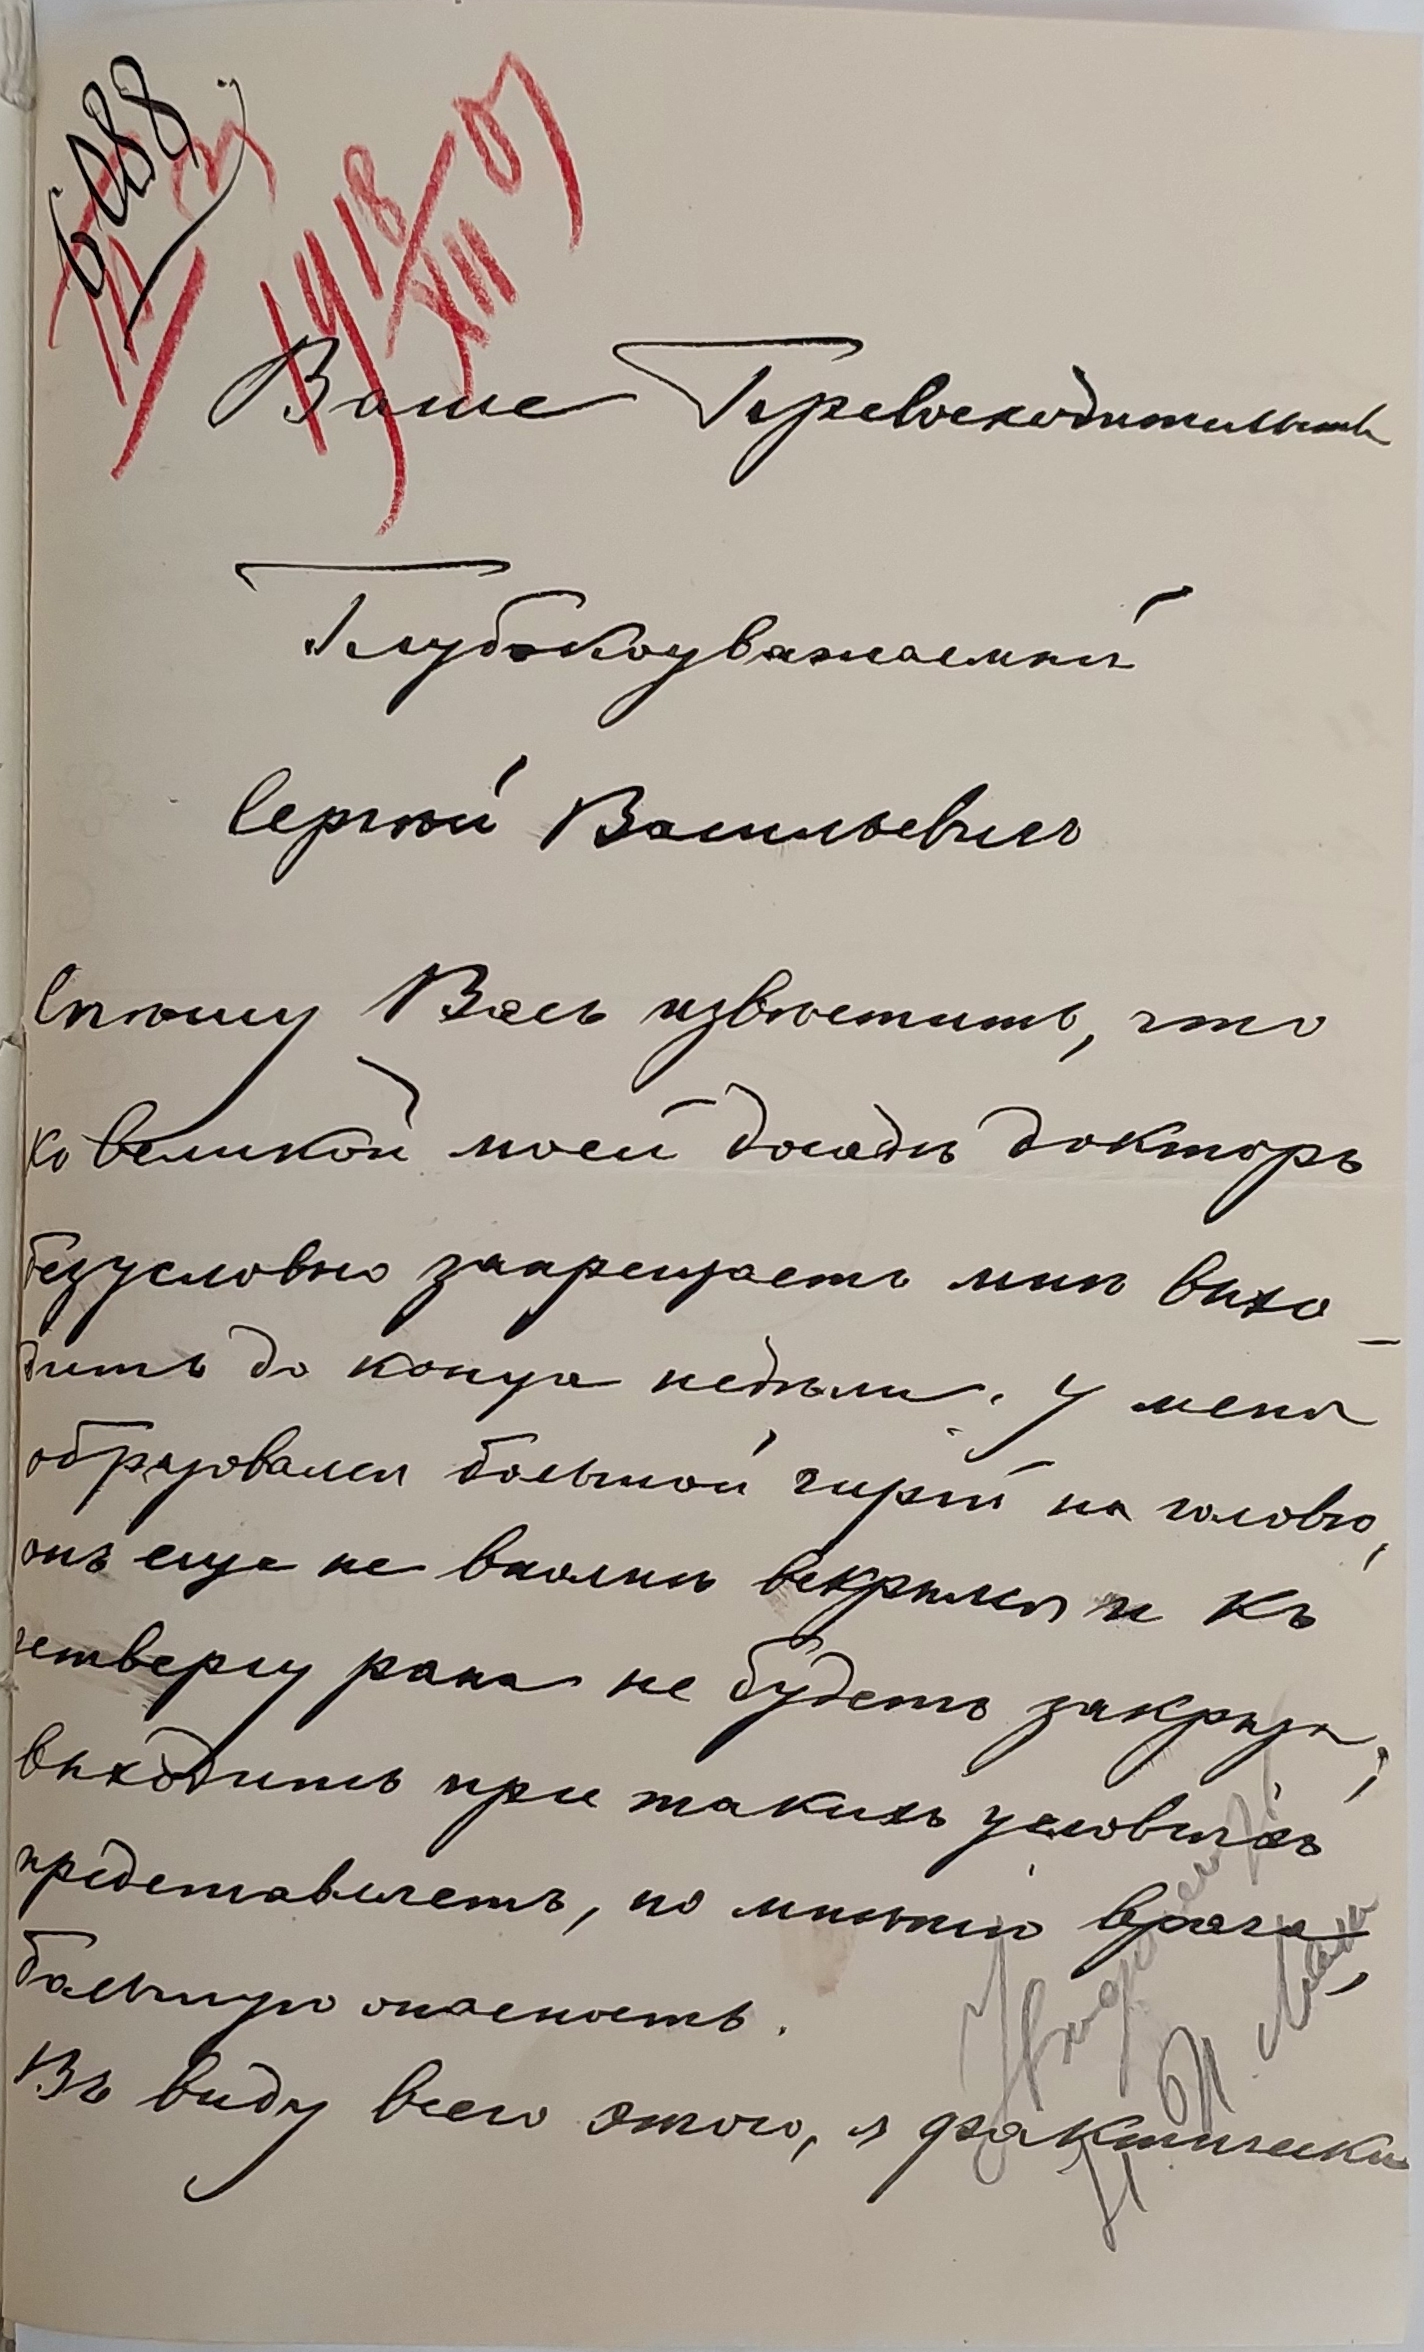 6088
19 18/XII 07
Ваше Превосходительство
Глубокоуважаемый
Сергѣй Васильевичъ
Спѣшу Васъ извѣстить, что
ко великой моей досадѣ докторъ
безусловно запрещаетъ мнѣ выхо-
дить до конца недѣли. У меня
образовался большой чирей на головѣ,
онъ еще не вполнѣ вскрылся и къ
четвергу рана не будетъ закрыта,
выходить при такихъ условіяхъ
представляетъ, по мнѣнію врача,
большую опасность.
Въ виду всего этого, я фактически